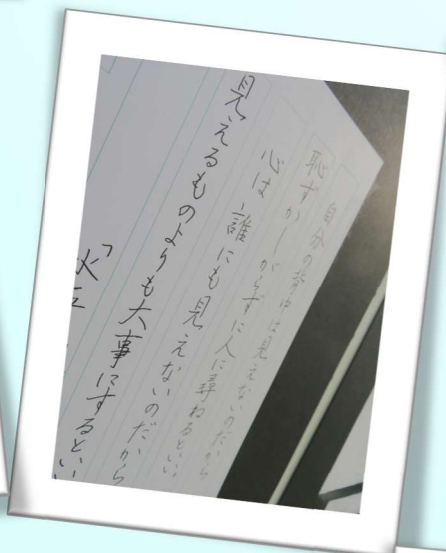 自分の背中は見えないのだから
恥ずかしがらずに人に尋ねるといい
心は誰にも見えないのだから
見えるものよりも大事にするといい
「火